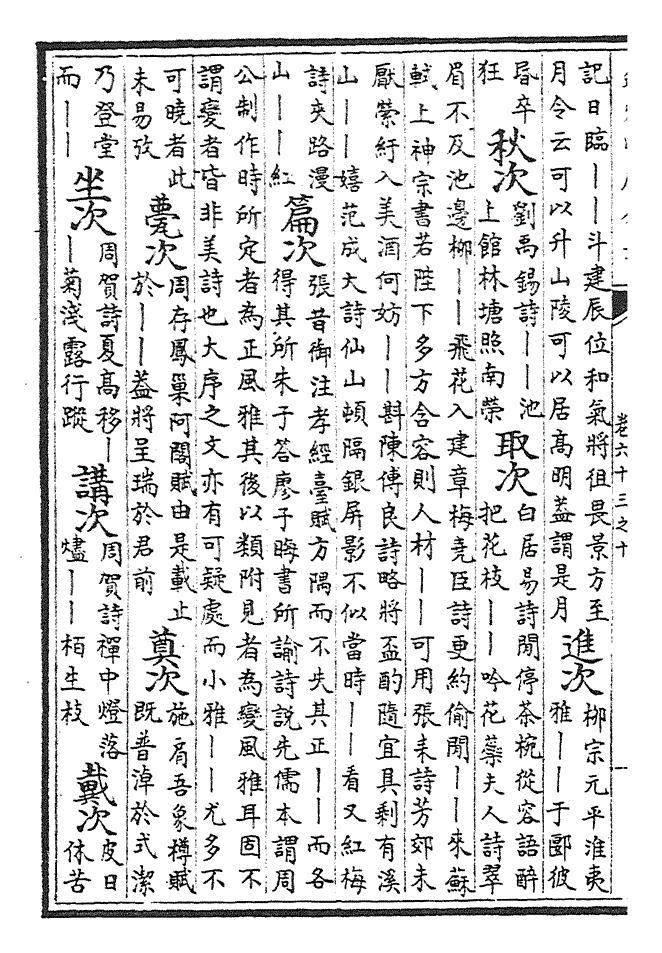 記日臨——斗建辰位和氣將徂畏景方至
月令云可以升山陵可以居高明蓋謂是月
進次
柳宗元平淮夷
雅——于郾彼
昏卒
狂
秋次
劉禹錫詩——池
上館林塘照南榮
取次
白居易詩閒停茶椀從容語醉
把花枝——吟花蘂夫人詩翠
眉不及池邊柳——飛花入建章梅堯臣詩更約偷閒——來蘇
軾上神宗書若陛下多方含容則人材——可用張耒詩芳郊未
厭縈紆入美酒何妨——斟陳傅良詩略將盃酌隨宜具剩有溪
山——嬉范成大詩仙山頓隔銀屏影不似當時——看又紅梅
詩夾路漫
山——紅
篇次
張昔御注孝經臺賦方隅而不失其正——而各
得其所朱子答廖子晦書所諭詩說先儒本謂周
公制作時所定者為正風雅其後以類附見者為變風雅耳固不
謂變者皆非美詩也大序之文亦有可疑處而小雅——尤多不
可曉者此
未易攷
甍次
周存鳳巢阿閣賦由是載止
於——蓋將呈瑞於君前
奠次
施肩吾象樽賦
既普淖於式潔
乃登堂
而——
坐次
周賀詩夏高移—
—菊淺露行蹤
講次
周賀詩禪中燈落
燼——栢生枝
戴次
皮日
休苦
卷六十三之十